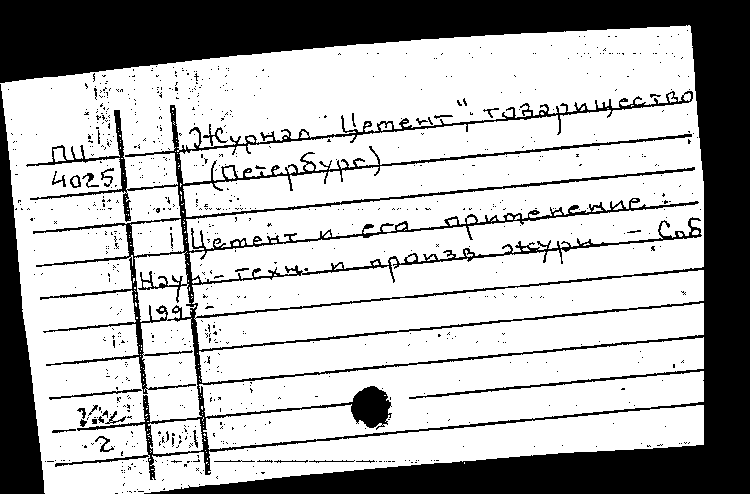 „Журнал „Цемент", товарищество
ПЦ
4025 (Петербург)
Цемент и его применение :
Науч.-техн. и произв. журн. - Спб
1997-
2